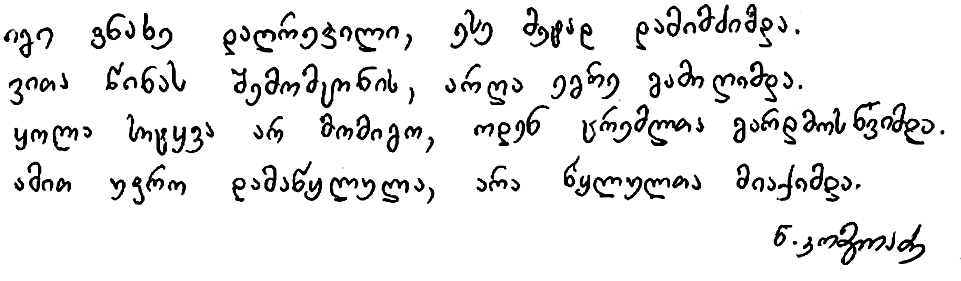 იგი ვნახე დაღრეჯილი, ესე მეტად დამიმძიმდა.
ვითა წინას შემომცინის, არღა ეგრე გამილიმდა.
ყოლა სიტყვა არ მომიგო, ოდენ ცრემლთა გარდმოსწვიმდა.
ამით უფრო დამაწყლულა, არა წყლულთა მიაქიმდა.